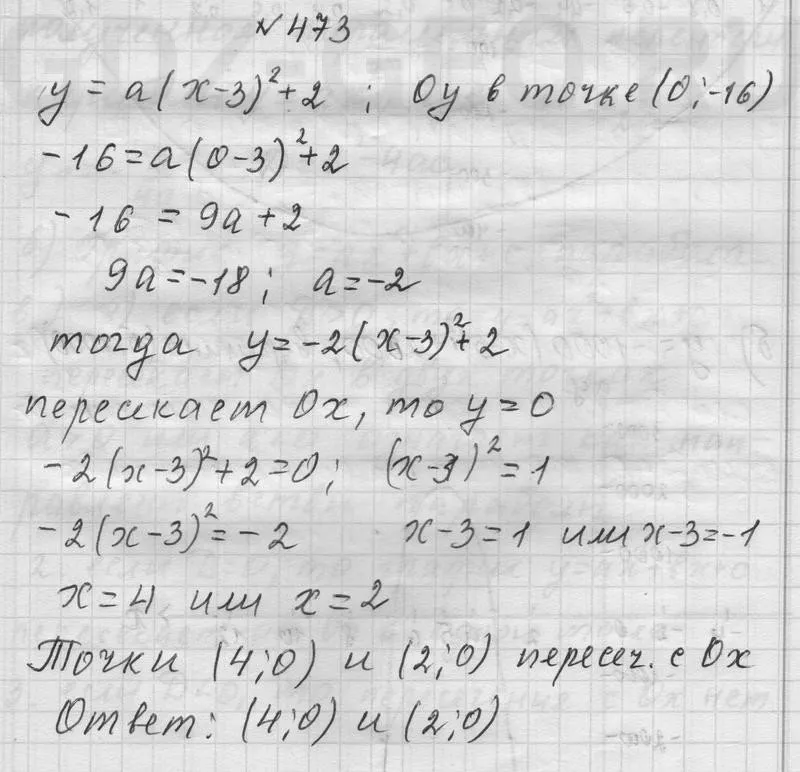 №473
y = a(x-3)²+2 ; Oy в точке (0;-16)
-16=a(0-3)²+2
-16 = 9a+2
9a=-18; a=-2
тогда y=-2(x-3)²+2
пересекает Ox, то y=0
-2(x-3)²+2=0; (x-3)²=1
-2(x-3)²=-2 x-3=1 или x-3=-1
x=4 или x=2
Точки (4;0) и (2;0) пересеч. с Ox
Ответ: (4;0) и (2;0)